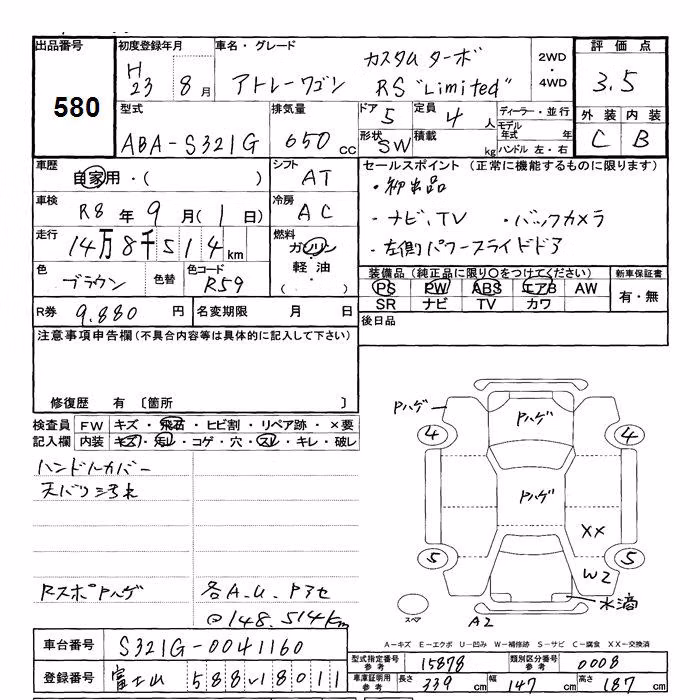 出品番号
580
初度登録年月
H23 8月
車名・グレード
アトレーワゴン カスタムターボ RS "Limited"
2WD・4WD
評価点
3.5
外装 内装
C B
型式
ABA-S321G
排気量
650 cc
ドア 5
定員 4 人
形状 SW
積載 kg
ディーラー・並行
モデル年式 年
ハンドル 左・右
車歴
自家用・( )
シフト
AT
車検
R8年9月(1日)
冷房
AC
走行
14万8千514km
燃料
ガソリン・軽油
( )
色
ブラウン
色替
色コード
R59
R券 9,880円
名変期限 月 日
セールスポイント (正常に機能するものに限ります)
・初出品
・ナビ、TV ・バックカメラ
・左側パワースライドドア
装備品(純正品に限り○をつけてください)
PS PW ABS エアB AW
SR ナビ TV カワ
新車保証書
有・無
後日品
注意事項申告欄(不具合内容等は具体的に記入して下さい)
修復歴 有 〔箇所 〕
検査員記入欄
FW キズ・飛石・ヒビ割・リペア跡・×要
内装 キズ・汚レ・コゲ・穴・スレ・キレ・破レ
ハンドルカバー
天バリ汚れ
RスポPハゲ
各A.U.Pアセ
@148,514km
Pハゲ
Pハゲ
Pハゲ
4
4
5
5
XX
W2
水滴
A2
スペア
A-キズ E-エクボ U-凹み W-補修跡 S-サビ C-腐食 XX-交換済
車台番号
S321G-0041160
登録番号
富士山 588い8011
型式指定番号 参考
15878
類別区分番号 参考
0008
車庫証明用 参考
長さ 339cm
幅 147cm
高さ 187cm